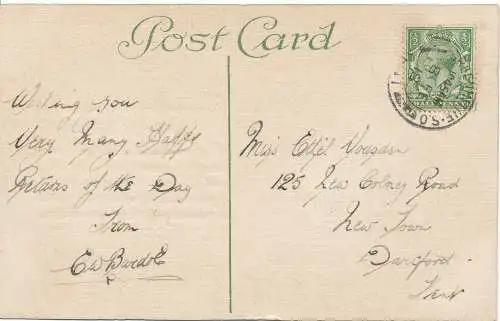 Post Card
Wishing you
Very Many Happy
Returns of the Day
from
EW Burdol
Miss Ethel
125 New Road
New Town
Dartford
Kent